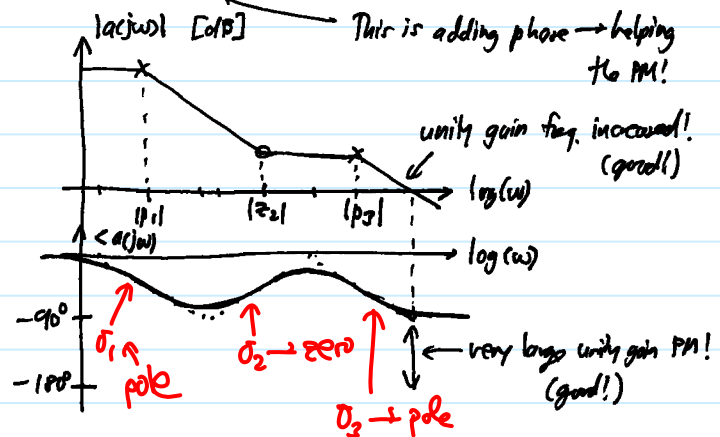 |a(jω)| [dB]
This is adding phase → helping
the PM!
unity gain freq. increased!
(good!)
log(ω)
|p₁| |z₂| |p₃|
<a(jω)
log(ω)
-90°
σ₁ pole
σ₂ → zero
-180°
σ₃ → pole
very large unity gain PM!
(good!)